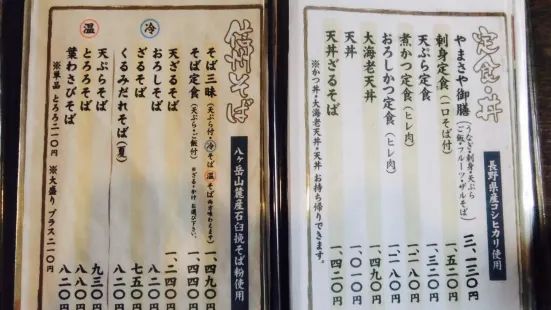 定食・丼
長野県産コシヒカリ使用
やまさや御膳(うなぎ・刺身・天ぷら ご飯・フルーツ・ザルそば) 三、一三〇円
刺身定食(一口そば付) 一、五二〇円
天ぷら定食 一、三二〇円
煮かつ定食(ヒレ肉) 一、二八〇円
おろしかつ定食(ヒレ肉) 一、二八〇円
大海老天丼 一、四九〇円
天丼 一、〇一〇円
天丼ざるそば 一、四二〇円
※かつ丼・大海老天丼・天丼 お持ち帰りできます。
信州そば
八ヶ岳山麓産石臼挽そば粉使用
そば三昧(天ぷら付・冷そば 温そば 両方味わえます) 一、四九〇円
そば定食(天ぷら・ご飯付) おざる・かけ お選び下さい。 一、四四〇円
冷 天ざるそば 一、二四〇円
おろしそば 八二〇円
ざるそば 七五〇円
くるみだれそば(夏) 八二〇円
温 天ぷらそば 九三〇円
とろろそば 八二〇円
葉わさびそば 八二〇円
※単品 とろろ二一〇円 ※大盛り プラス二一〇円